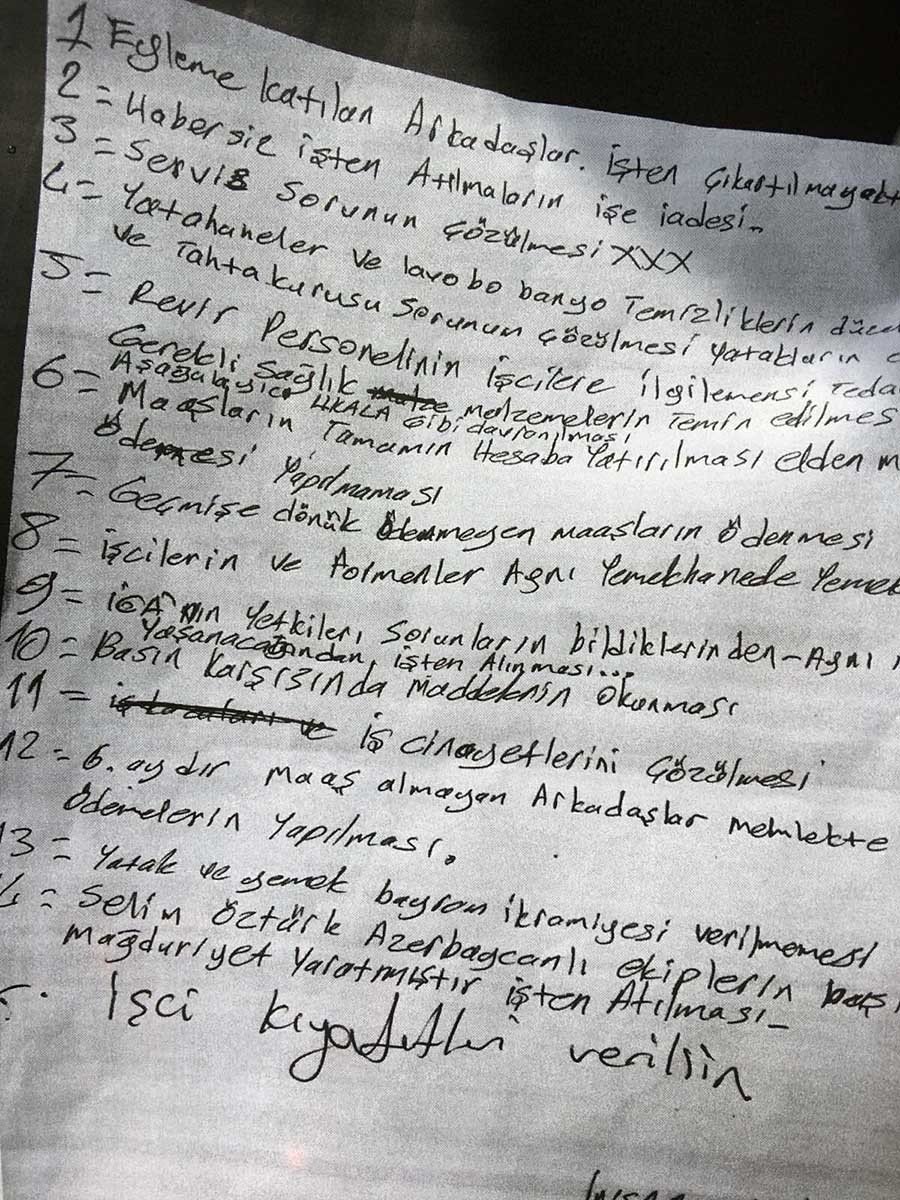 1 Eyleme katılan Arkadaşlar. işten çıkartılmayakt
2 = Habersiz işten Atılmaların işe iadesi.
3 = Servis Sorunun çözülmesi XXX
4 = Yatahaneler ve lavobo banyo Temizliklerin düze
ve Tahtakurusu Sorunun çözülmesi yatakların
5 = Revir Personelinin işcilere ilgilemensi Teda
Gerekli Sağlık malzemelerin Temin edilmes
Aşağulayici UKALA Gibi davronılması
6 = Maaşların Tamamın Hesaba Yatırılması elden m
Ödemesi Yapılmaması
7 = Geçmişe dönük Ödenmeyen maaşların Ödenmesi
8 = işcilerin ve formenler Aynı Yemekhanede Yemek
9 = iGA'nın Yetkileri Sorunların bildiklerinden - Aynı
Yaşanacağından, işten Alınması...
10 = Basın karşısında maddelenin okunması
11 = iş cinayetlerini çözülmesi
12 = 6. aydır maaş almayan Arkadaşlar memlekte
Ödemelerin Yapılması.
13 = Yatak ve yemek bayram ikramiyesi verilmemesi
4 = Selim Öztürk Azerbaycanlı ekiplerin baş
mağduriyet Yaratmıştır işten Atılması -
İşci kıyafetleri verilsin